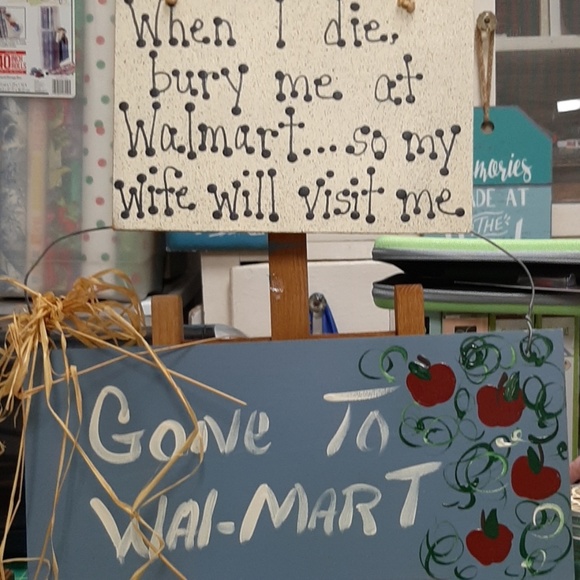 When I die,
bury me at
Walmart...so my
wife will visit me.
mories
DE AT
THE
Gone To
Wal-Mart